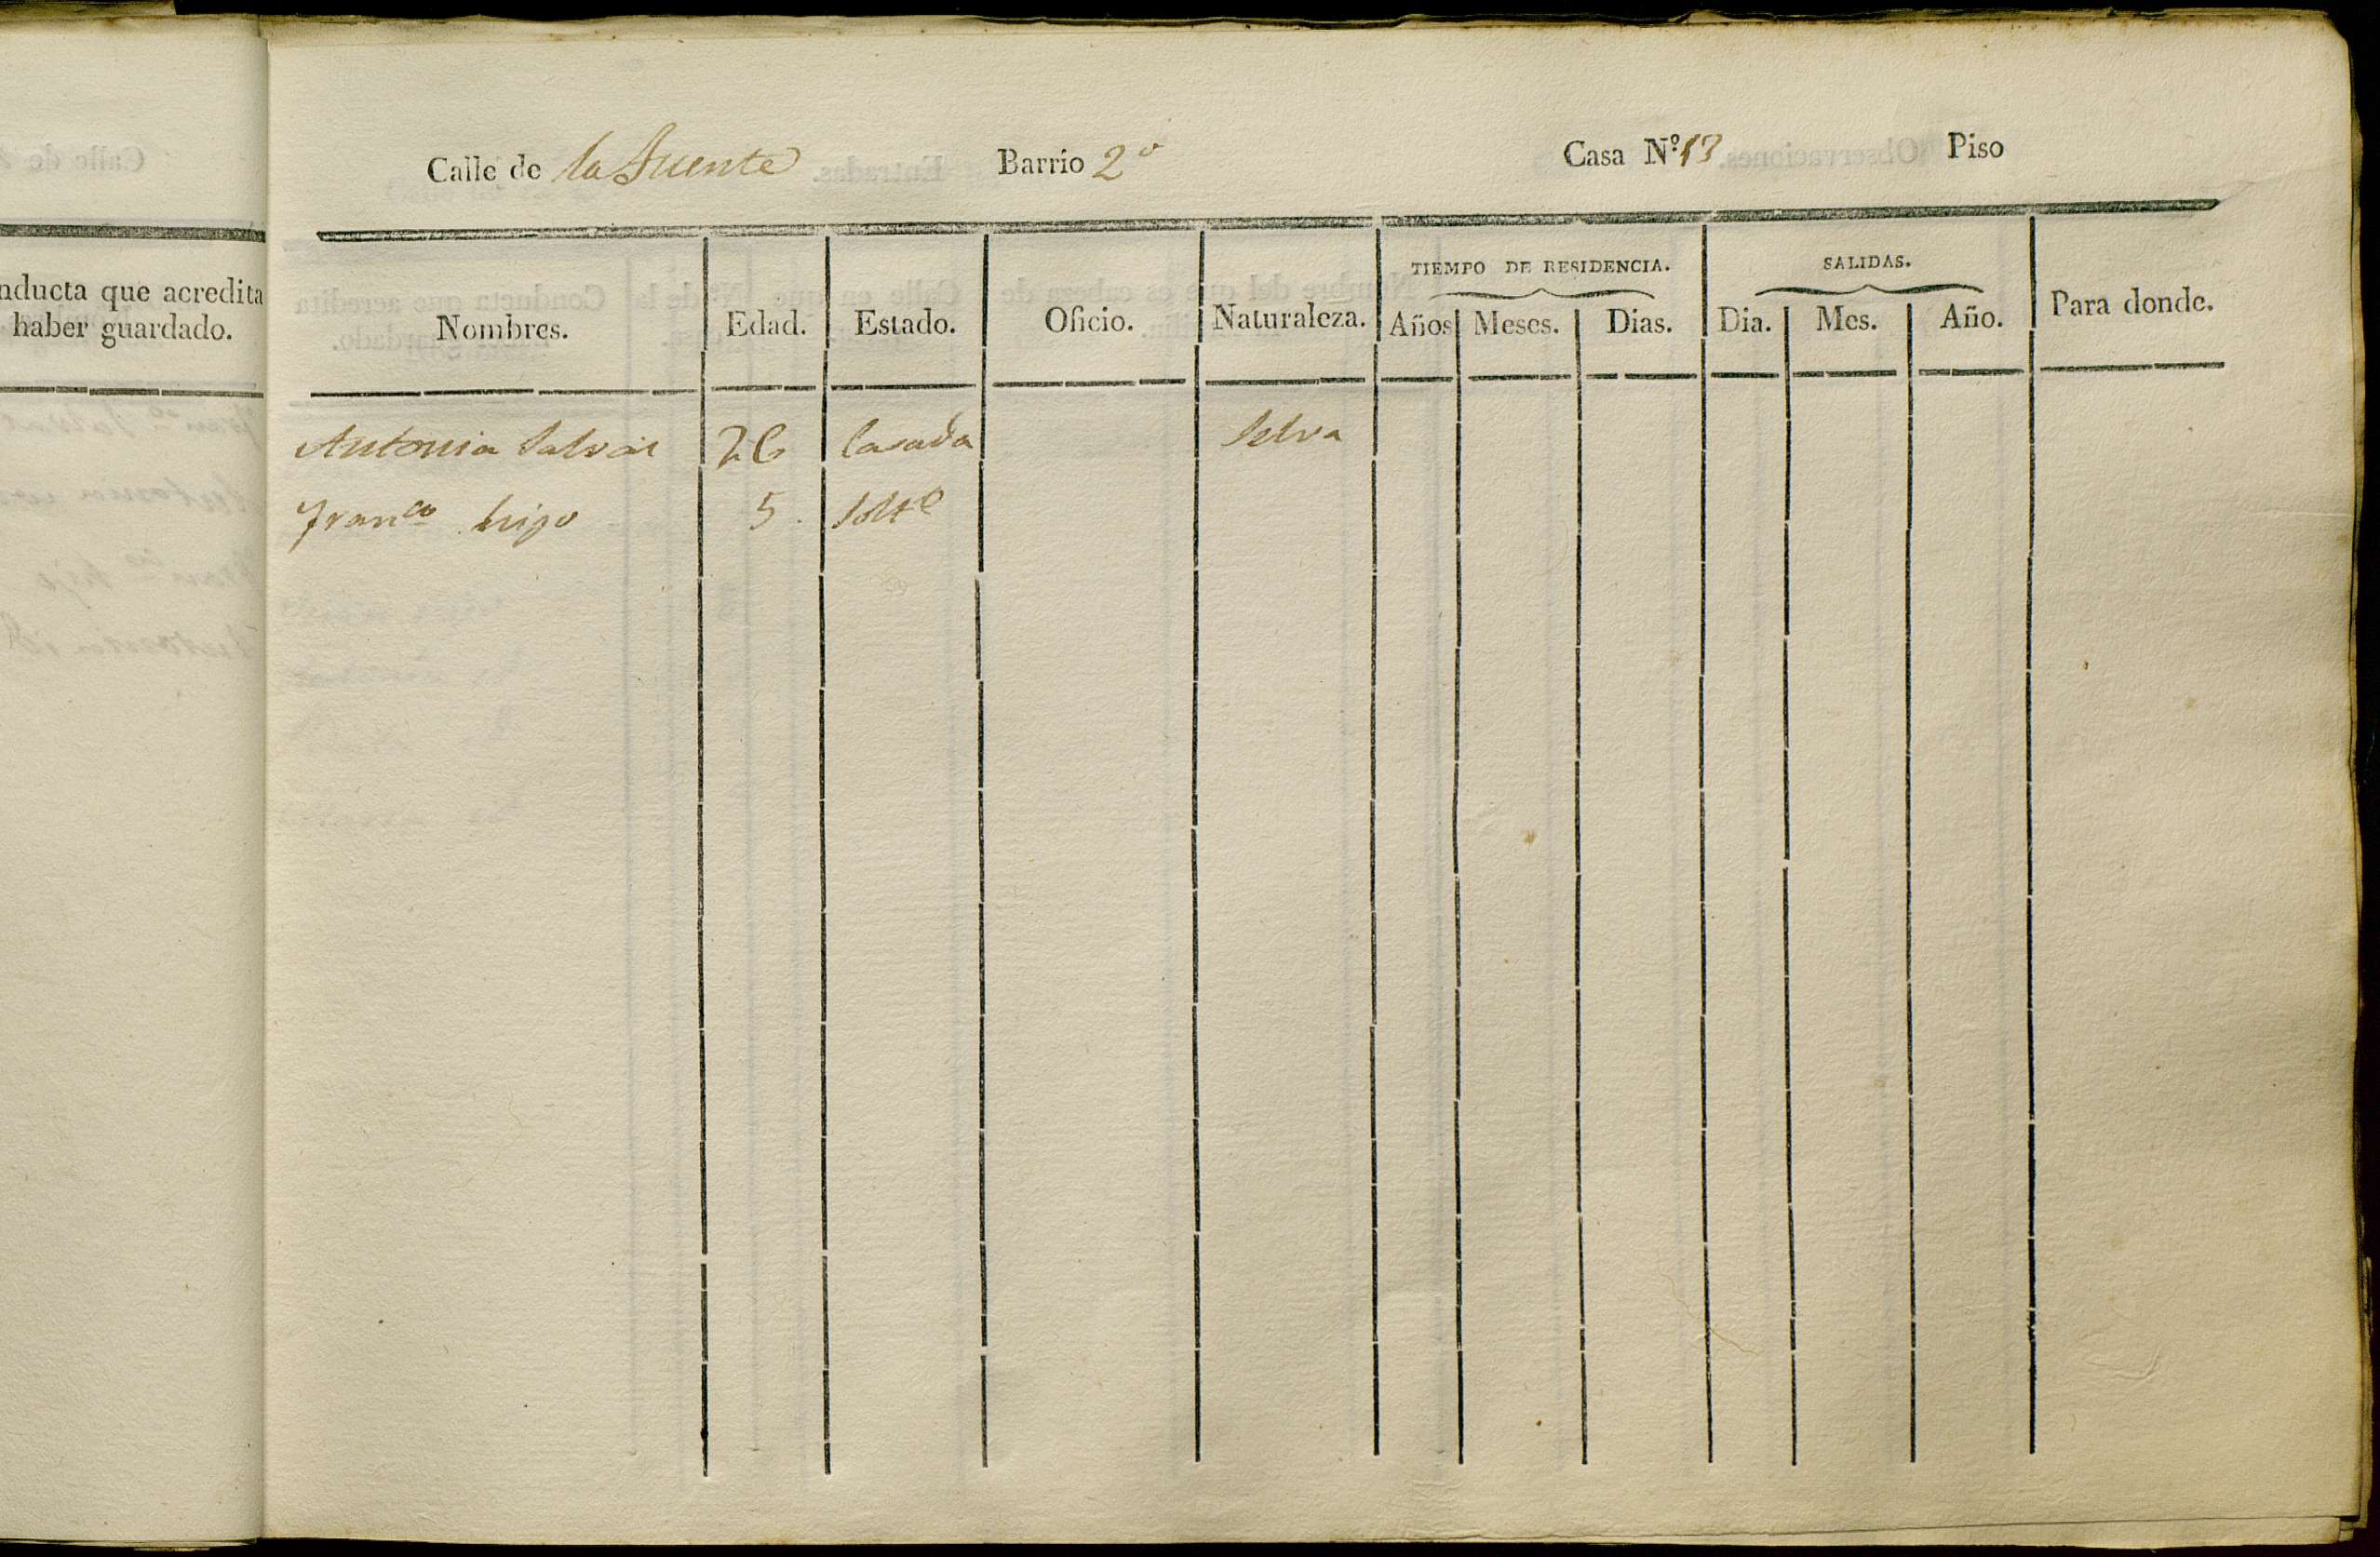 nducta que acredita
haber guardado.
Calle de la Fuente Barrio 2º Casa Nº 13 Piso
TIEMPO DE RESIDENCIA. SALIDAS.
Nombres. Edad. Estado. Oficio. Naturaleza. Años Meses. Dias. Dia. Mes. Año. Para donde.
Antonia 26 Casada Selva
Franco hijo 5. Solte